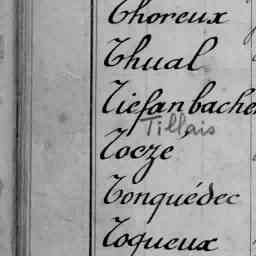 Thoreux
Thual
Tiefanbacher
Tillais
Toczé
Tonquédec
Toqueux